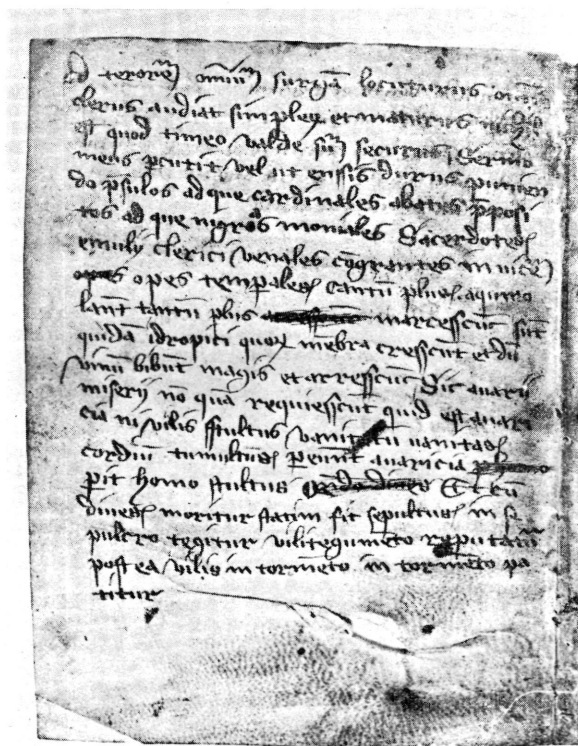 Ad terorē omniū surgā locuturus
clerus audiat simplex et maturus
est quod timeo valde sū securus Sermo
meus pcutit vel ut enssis durus punien
do psulos ad que cardinales abates pposi
tos ad que nigros moniales Sacerdotes
emuly clerici venales cōgrantes in
opes tempales cantū plues aqumo
lant tantū plus marcesscūt sūt
quidā idropici quoꝝ mēbra cresscūt et dū
vinū bibūt magis et arresscūt Sic avari
miserii nō quā requiesscūt quid est avari
cia ni vilis sstultus vanitatū vanitas
cordiū tumultus perunt avaricia
perit homo stultus Et cū
dives moritur statim fit sepultus in se
pulcro tegitur vili tegumēto reputatur
post ea vilis in tormēto in tormēto pa
titur